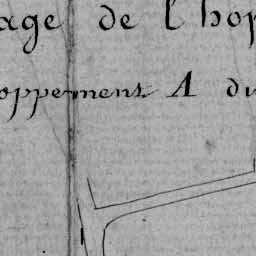 age de l'hop
oppement A du